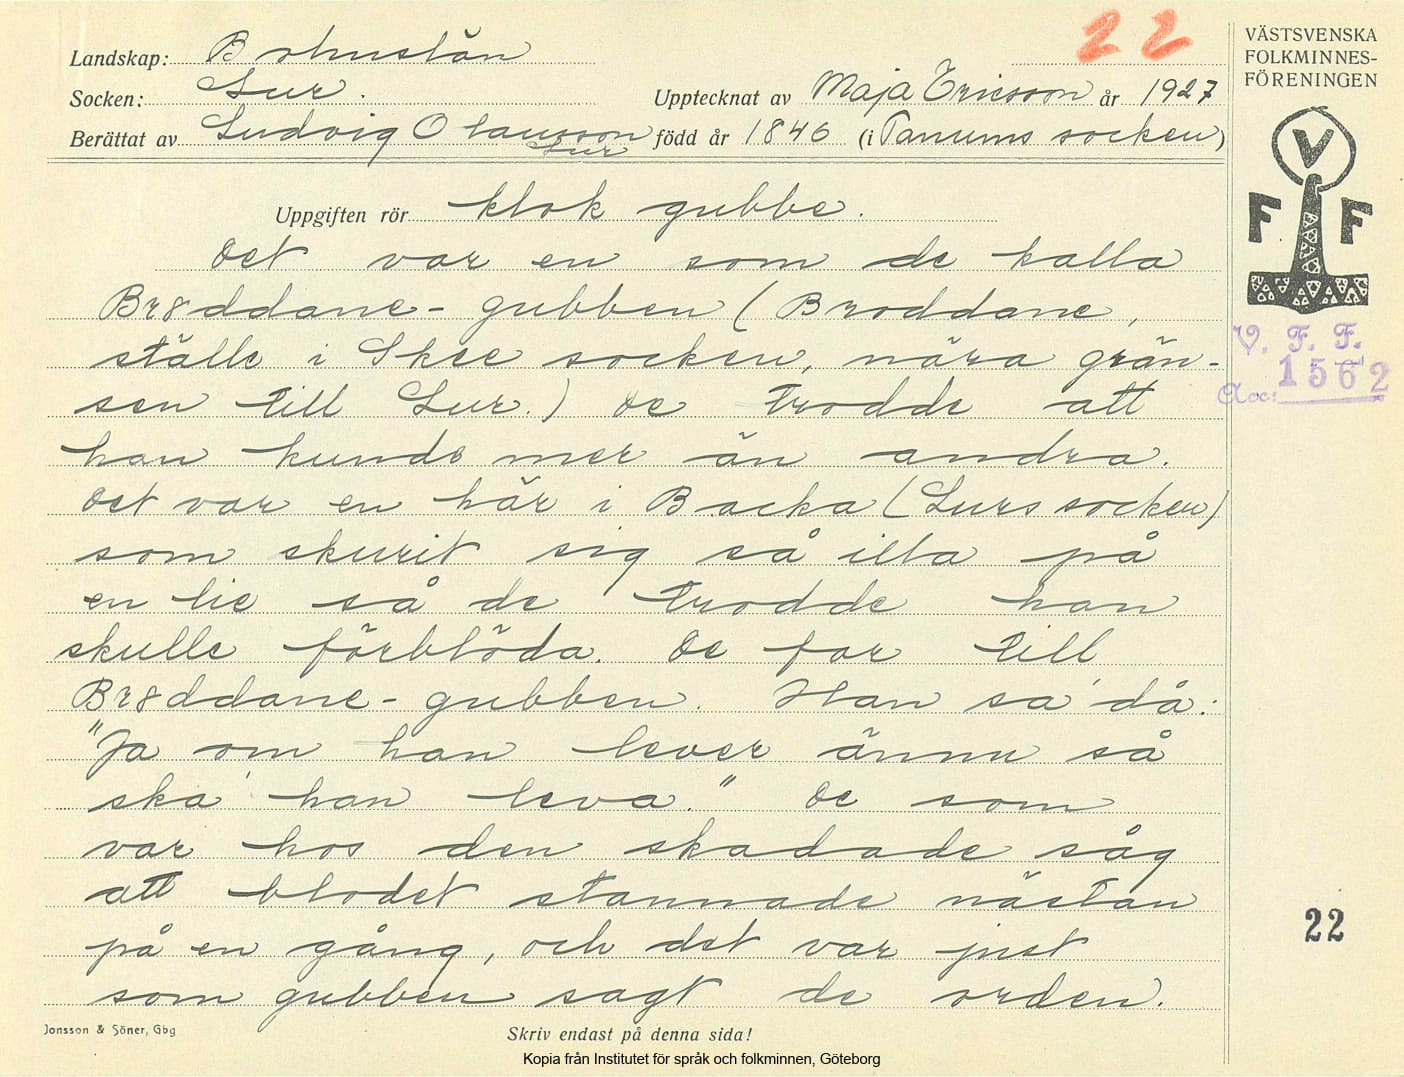 22
Landskap: Bohuslän
Socken: Lur.
Upptecknat av Maja Ericson år 1927
Berättat av Ludvig Olausson Lur född år 1846 (i Tanums socken)
VÄSTSVENSKA
FOLKMINNES-
FÖRENINGEN
V
F F
V. F. F.
Acc: 1562
Uppgiften rör klok gubbe.
Det var en som de kalla
Brøddane-gubben (Broddane,
ställe i Skee socken, nära grän-
sen till Lur.) De trodde att
han kunde mer än andra.
Det var en här i Backa (Lurs socken)
som skurit sig så illa på
en lie så de trodde han
skulle förblöda. De for till
Brøddane-gubben. Han sa' då:
"Ja om han lever ännu så
ska' han leva." De som
var hos den skadade såg
att blodet stannade nästan
på en gång, och det var just
som gubben sagt de orden.
22
Jonsson & Söner, Gbg
Skriv endast på denna sida!
Kopia från Institutet för språk och folkminnen, Göteborg